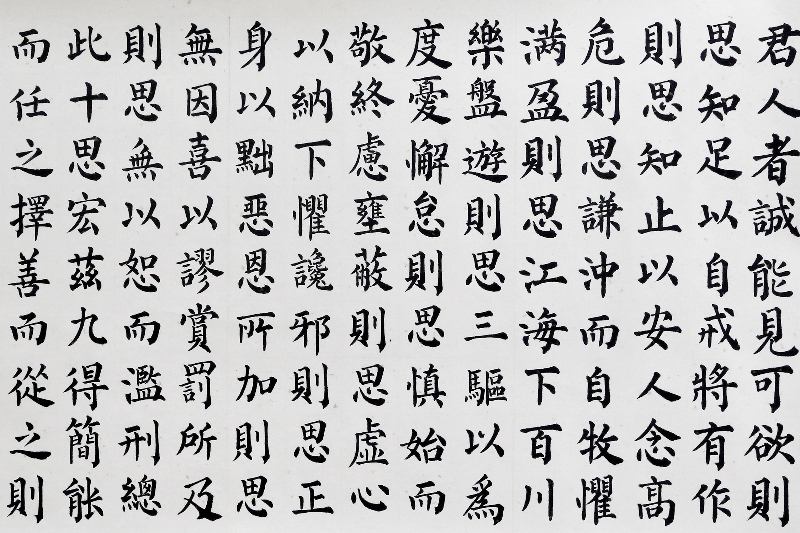 君人者誠能見可欲則
思知足以自戒將有作
則思知止以安人念高
危則思謙沖而自牧懼
满盈則思江海下百川
樂盤遊則思三驅以爲
度憂懈怠則思慎始而
敬終慮壅蔽則思虛心
以納下懼讒邪則思正
身以黜惡恩所加則思
無因喜以謬賞罰所及
則思無以怒而濫刑總
此十思宏茲九得簡能
而任之擇善而從之則